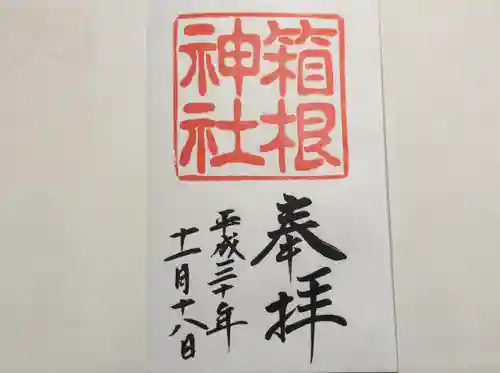 箱根
神社
奉拝
平成三十年
十一月十八日